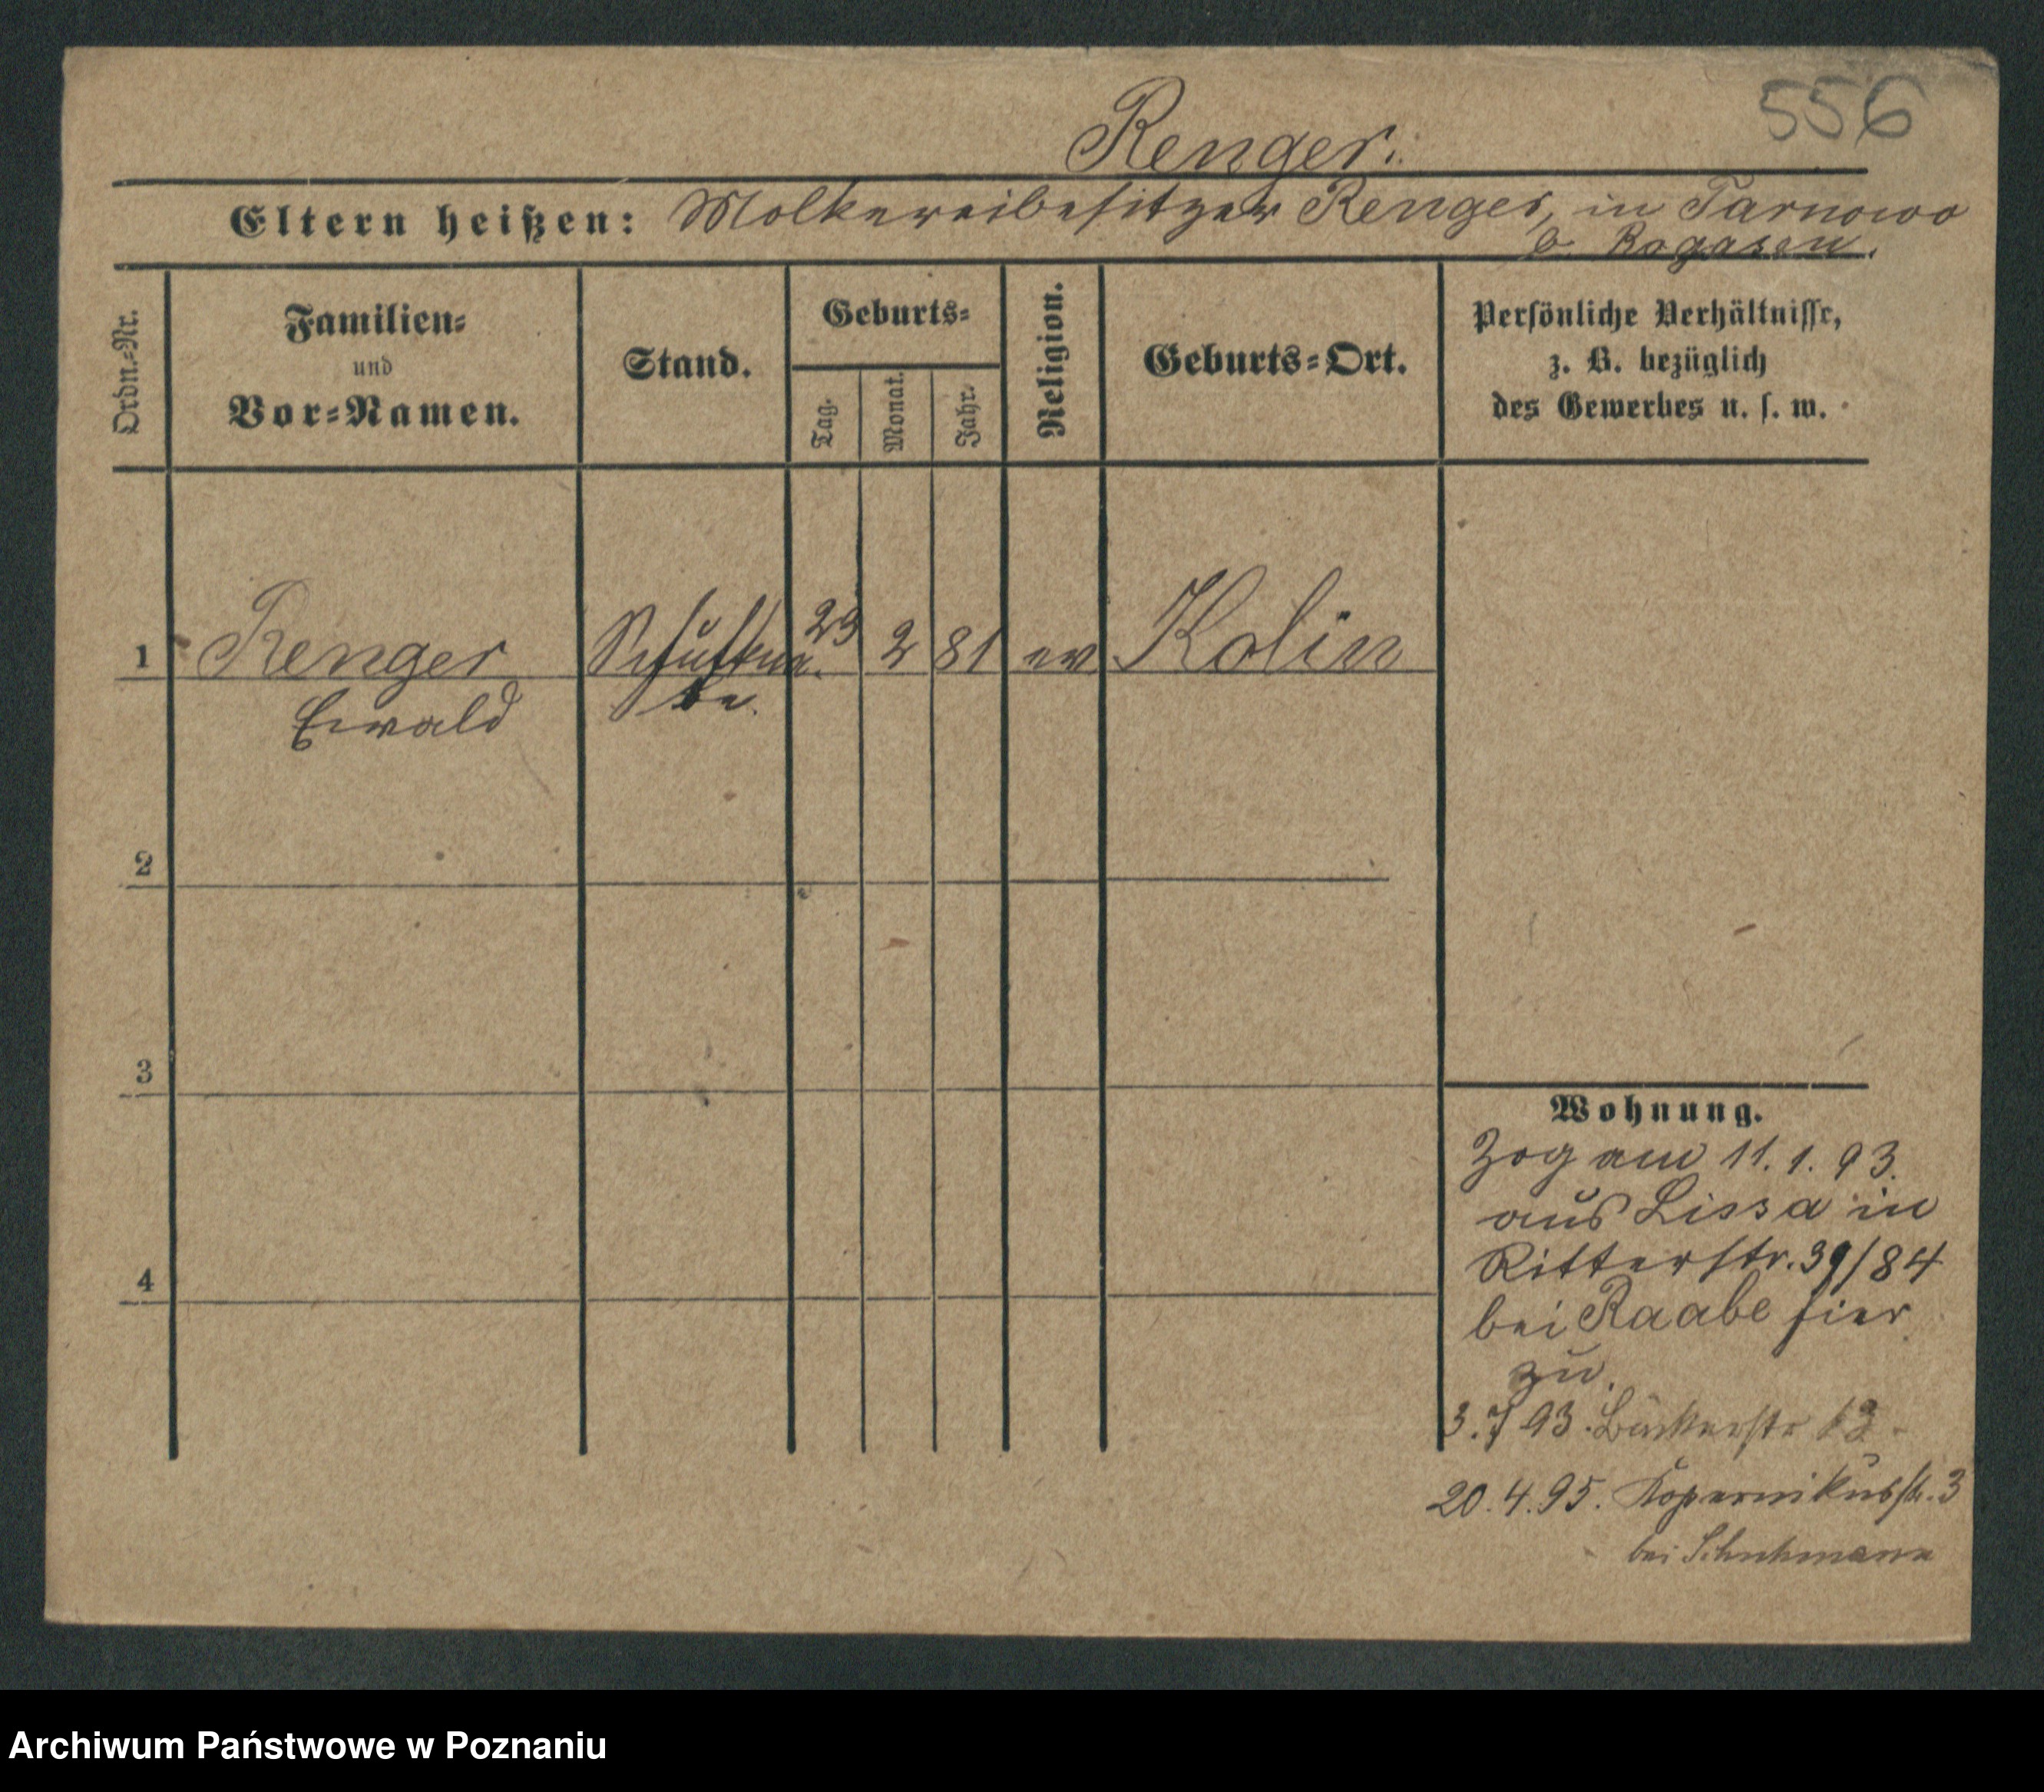 556
Renger.
Eltern heißen: Molkereibesitzer Renger, in Tarnowo
b. Rogasen.
Ordn.-Nr.
Familien-
und
Vor-Namen.
Stand.
Geburts-
Tag.
Monat.
Jahr.
Religion.
Geburts-Ort.
Persönliche Verhältnisse,
z. B. bezüglich
des Gewerbes u. s. w.
1 Renger 23 2 81 ev. Kolin
Ewald
2
3
4
Wohnung.
Zog am 11.1.93.
aus Lissa in
Ritterstr. 39/84
bei Raabe hier
zu.
3.7 93. Bäckerstr 13
20.4.95. Kopernikusstr. 3
bei Schuhmann
Archiwum Państwowe w Poznaniu